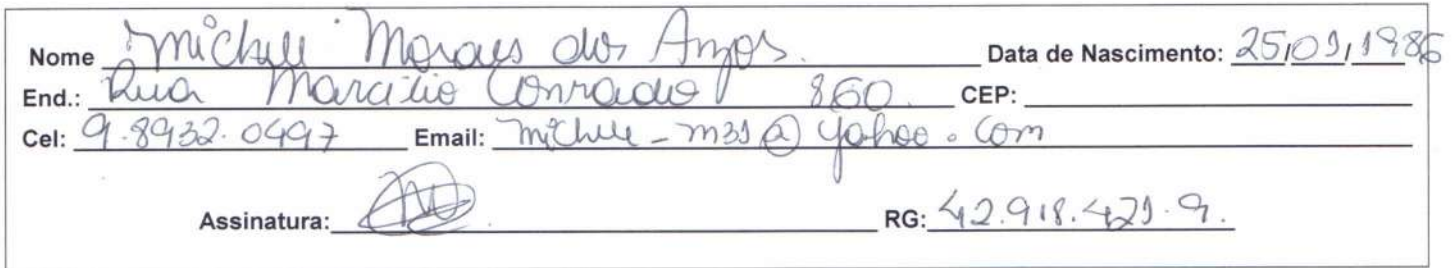 Nome Michele Moraes dos Anjos. Data de Nascimento: 25/01/1986
End.: Rua Marcilio Conrado 860. CEP:
Cel: 9.8932.0497 Email: michele_m31@yahoo.com
Assinatura: RG: 42.918.421.9.